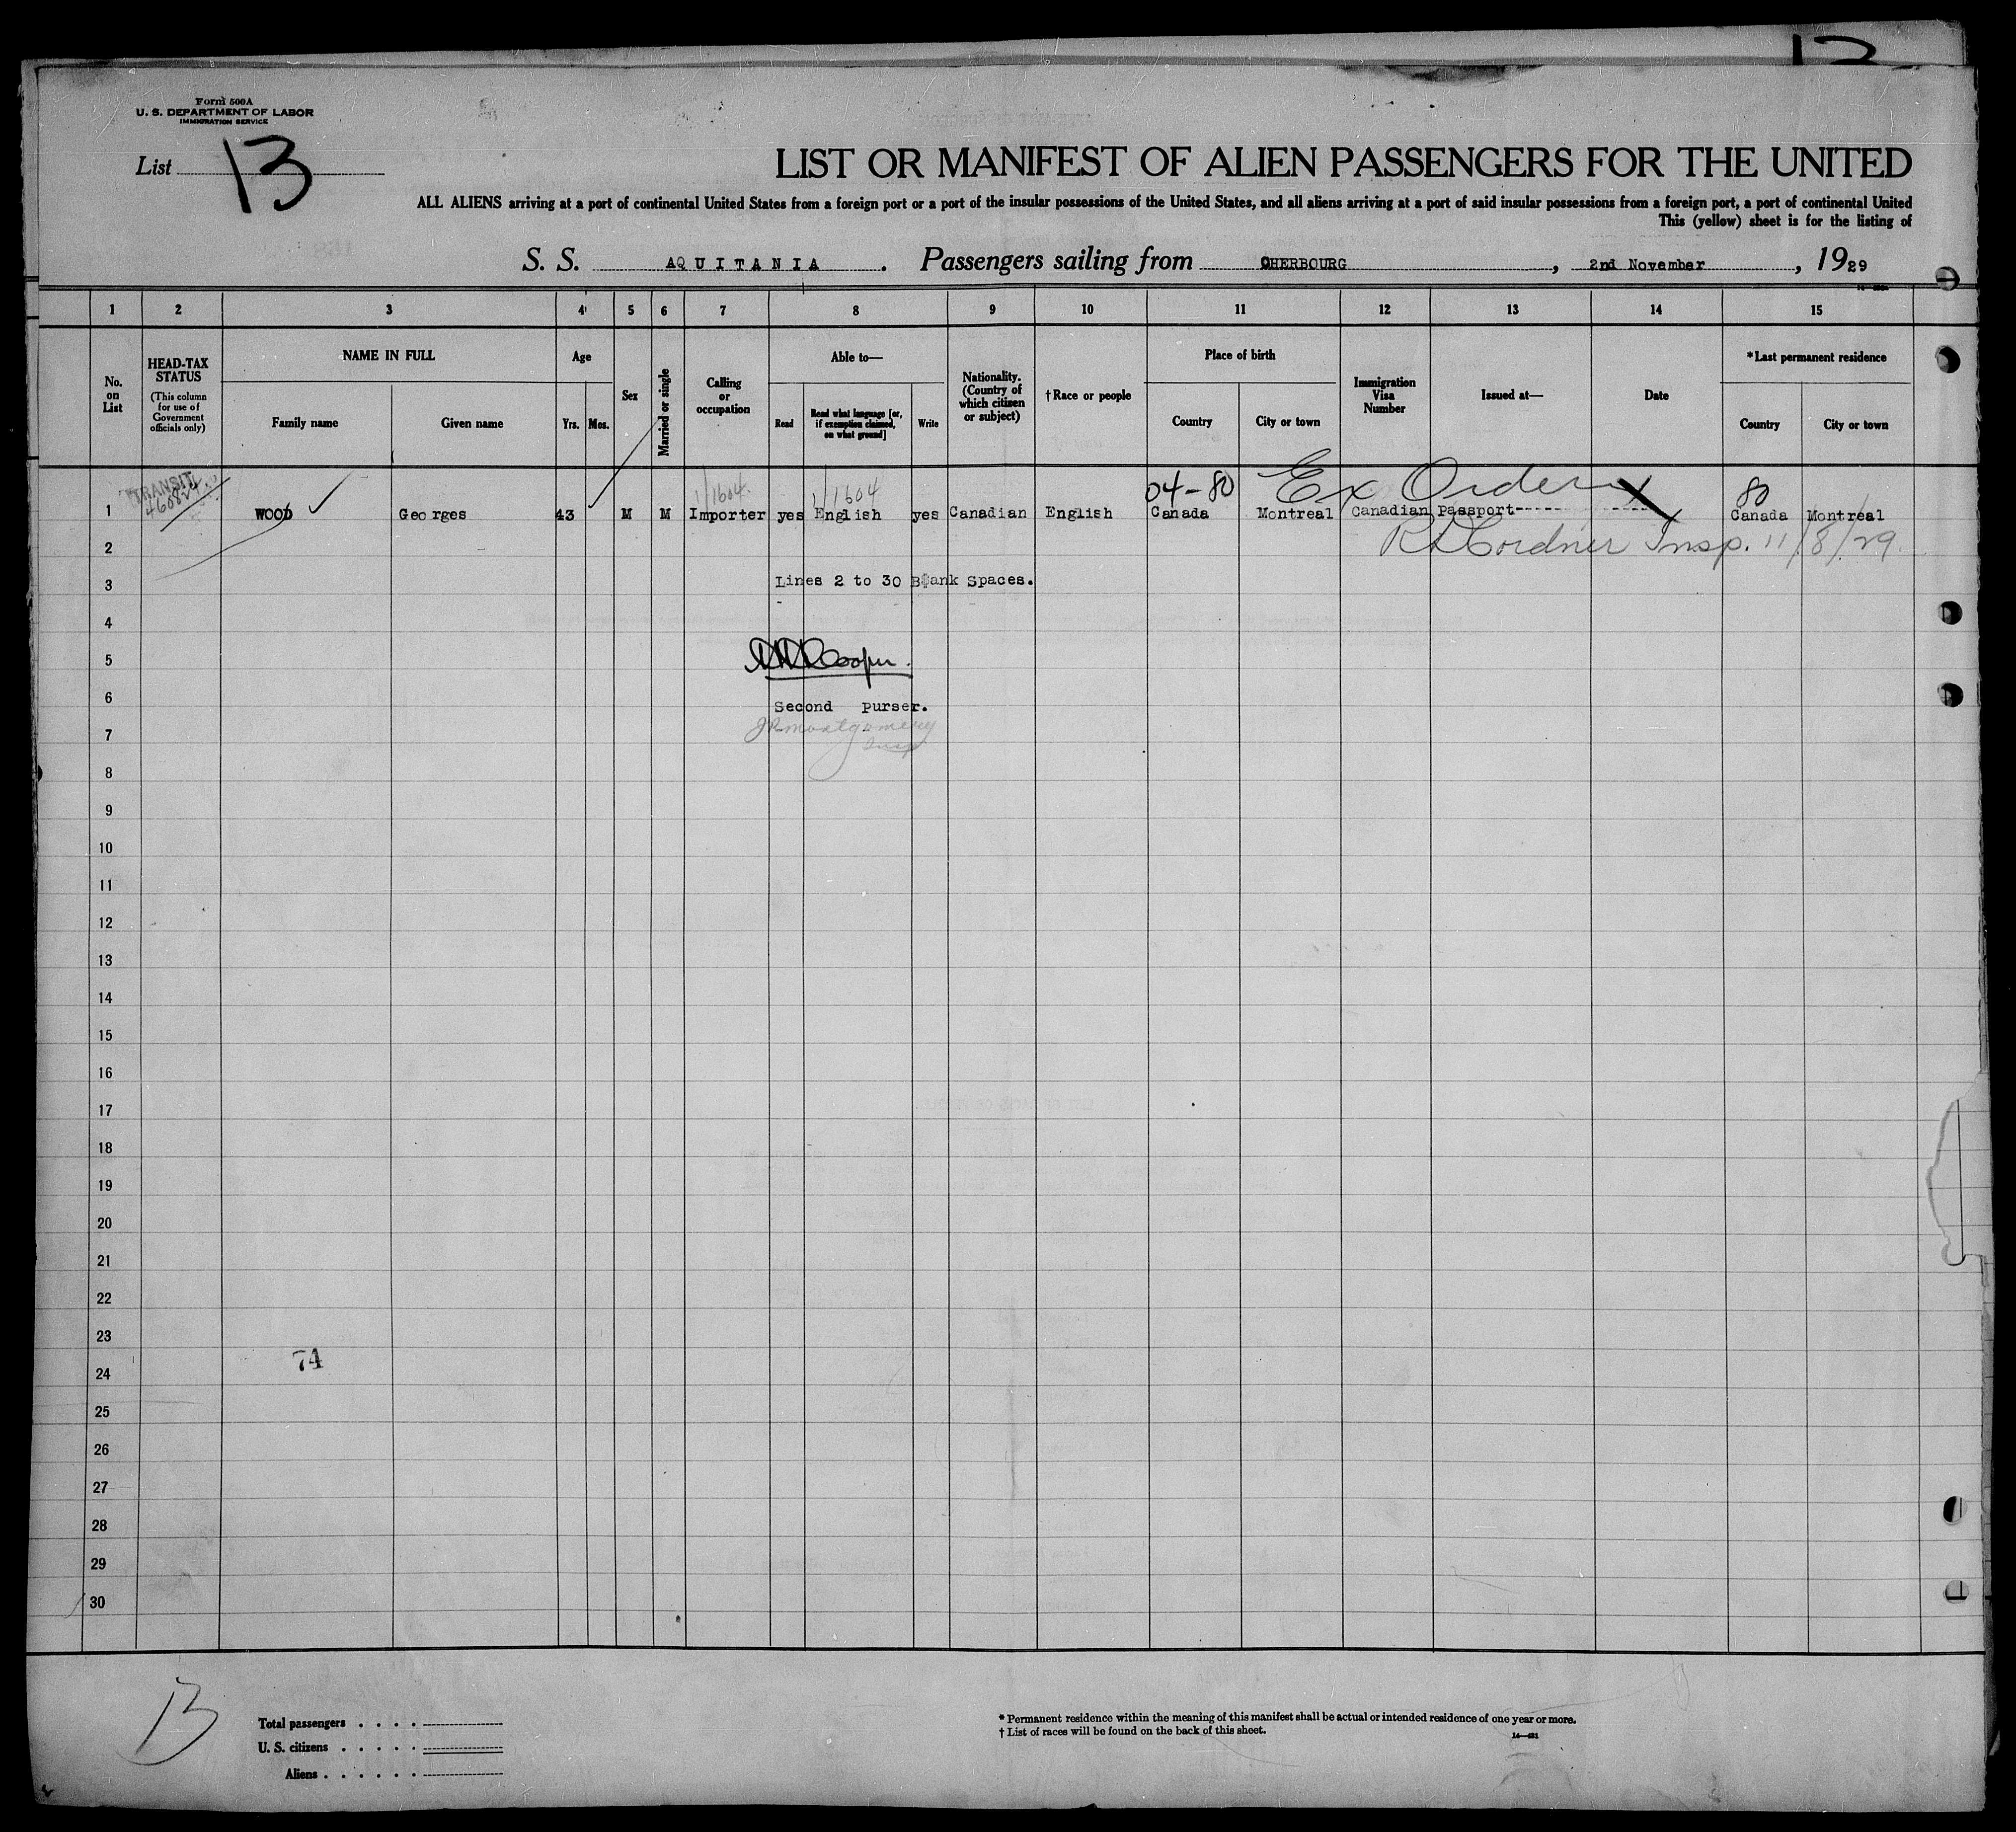 Form 500A
U. S. DEPARTMENT OF LABOR
IMMIGRATION SERVICE
List 13
LIST OR MANIFEST OF ALIEN PASSENGERS FOR THE UNITED
ALL ALIENS arriving at a port of continental United States from a foreign port or a port of the insular possessions of the United States, and all aliens arriving at a port of said insular possessions from a foreign port, a port of continental United
This (yellow) sheet is for the listing of
S. S. AQUITANIA. Passengers sailing from CHERBOURG, 2nd November, 1929
1 2 3 4 5 6 7 8 9 10 11 12 13 14 15
No. on List
HEAD-TAX STATUS
(This column for use of Government officials only)
NAME IN FULL
Family name
Given name
Age
Yrs.
Mos.
Sex
Married or single
Calling or occupation
Able to—
Read
Read what language [or, if exemption claimed, on what ground]
Write
Nationality. (Country of which citizen or subject)
†Race or people
Place of birth
Country
City or town
Immigration Visa Number
Issued at—
Date
*Last permanent residence
Country
City or town
TRANSIT 1/1604 1/1604 04-80 Ex Order 80
1 WOOD Georges 43 M M Importer yes English yes Canadian English Canada Montreal Canadian Passport------ Canada Montreal
2 Insp. 11/8/29
3 Lines 2 to 30 Blank Spaces.
4
5 Cooper.
6 Second purser.
7 JR Montgomery
Insp
8
9
10
11
12
13
14
15
16
17
18
19
20
21
22
23
74
24
25
26
27
28
29
30
13
Total passengers . . . .
U. S. citizens . . . . .
Aliens . . . . . .
* Permanent residence within the meaning of this manifest shall be actual or intended residence of one year or more.
† List of races will be found on the back of this sheet.